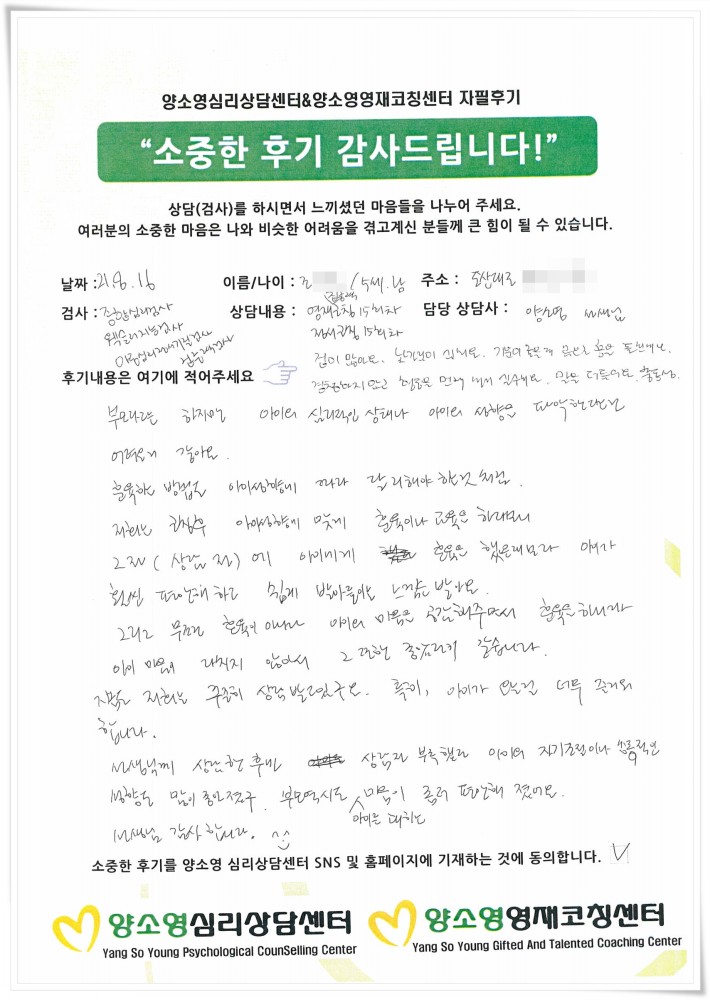 양소영심리상담센터&양소영영재코칭센터 자필후기
“소중한 후기 감사드립니다!”
상담(검사)를 하시면서 느끼셨던 마음들을 나누어 주세요.
여러분의 소중한 마음은 나와 비슷한 어려움을 겪고계신 분들께 큰 힘이 될 수 있습니다.
날짜 : 21.8.16 이름/나이 : 조 / 5세. 남 주소 :
검사 : 종합심리검사 상담내용 : 영재코칭 15회차 담당 상담사 : 양소영 선생님
웩슬러지능검사
정서코칭 15회차
겁이 많아요.
후기내용은 여기에 적어주세요
말을 더듬어요.
부모라고는 하지만 아이의 심리적인 상태나 아이의 성향을 파악한다는건
어려운거 같아요.
훈육하는 방법도 아이성향에 따라 달리해야 하는것처럼
저희는 아이성향에 맞게 훈육이나 교육을 하다보니
그전(상담 전)에 아이에게 훈육을 했을때보다 아이가
훨씬 편안해 하고 쉽게 받아들이는 느낌을 받아요.
그리고 무조건 훈육이 아니라 아이의 마음을 공감해주면서 훈육을 하니까
아이 마음이 다치지 않아서 그 또한 좋은거 같습니다.
저희는 꾸준히 상담 받고있구요. 특히, 아이가 오는걸 너무 즐거워
합니다.
선생님께 상담한 후에는 상담전 부족했던 아이의 자기조절이나 충동적인
성향도 많이 좋아졌구 부모역시도 마음이 좀더 편안해 졌어요.
아이를 대하는
선생님 감사합니다.
소중한 후기를 양소영 심리상담센터 SNS 및 홈페이지에 기재하는 것에 동의합니다.
양소영심리상담센터
Yang So Young Psychological CounSelling Center
양소영영재코칭센터
Yang So Young Gifted And Talented Coaching Center